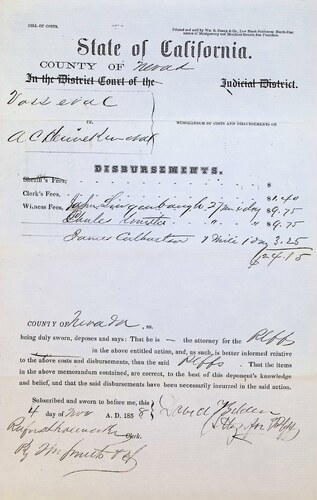 BILL OF COSTS.
Printed and sold by
State of California.
COUNTY OF Nevada
In the District Court of the Judicial District.
vs. MEMORANDUM OF COSTS AND DISBURSEMENTS OF
A C
DISBURSEMENTS.
Sheriff's Fees, $
Clerk's Fees, $1.40
Witness Fees, John 27 miles 1 day $9.75
Charles " " " $9.75
James Culbertson 7 Mile 1 Day 3.25
$24.15
COUNTY OF Nevada, ss.
being duly sworn, deposes and says: That he is — the attorney for the Plffs
in the above entitled action, and, as such, is better informed relative
to the above costs and disbursements, than the said Plffs. That the items
in the above memorandum contained, are correct, to the best of this deponent's knowledge
and belief, and that the said disbursements have been necessarily incurred in the said action.
Subscribed and sworn to before me, this
4 day of Nov A. D. 1858 David Belden
Rufus Shoemaker Clerk. Atty for Plffs
By Wm Smith